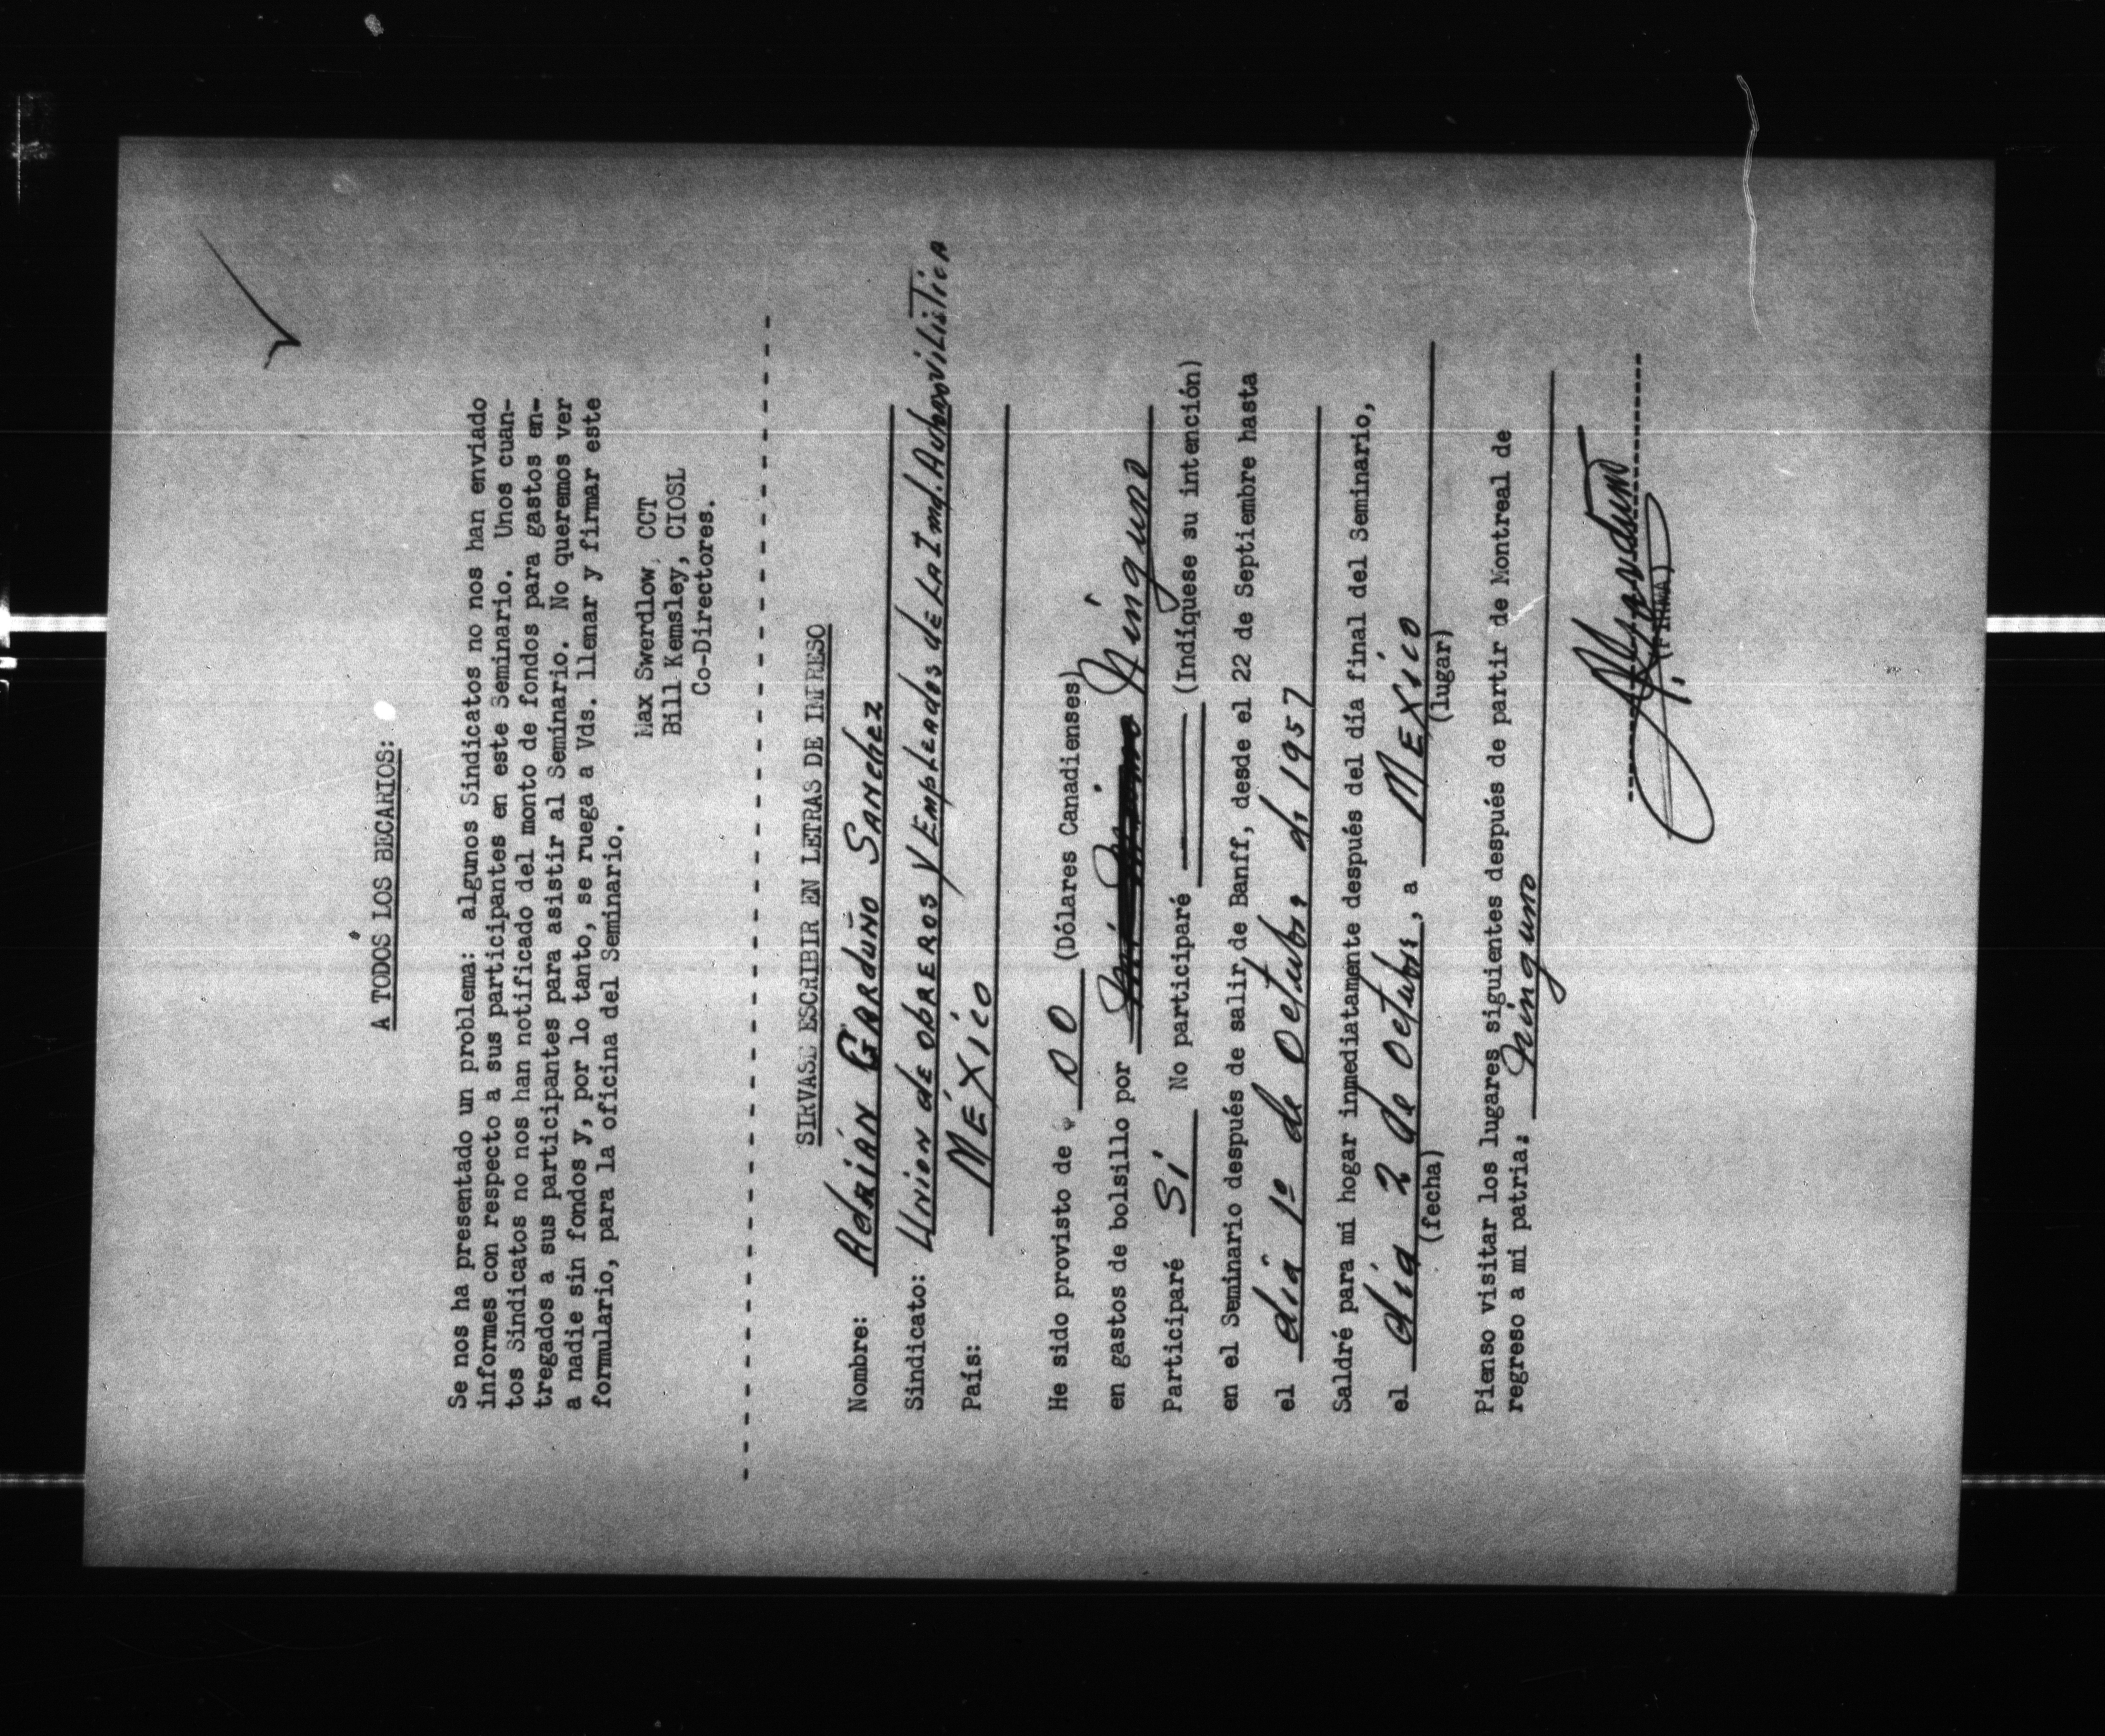 A TODOS LOS BECARIOS:
Se nos ha presentado un problema: algunos Sindicatos no nos han enviado
informes con respecto a sus participantes en este Seminario. Unos cuan-
tos Sindicatos no nos han notificado del monto de fondos para gastos en-
tregados a sus participantes para asistir al Seminario. No queremos ver
a nadie sin fondos y, por lo tanto, se ruega a Vds. llenar y firmar este
formulario, para la oficina del Seminario.
Max Swerdlow, CCT
Bill Kemsley, CIOSL
Co-Directores.
SIRVASE ESCRIBIR EN LETRAS DE IMPRESO
Nombre: Adrián Garduño Sanchez
Sindicato: Union de obreros y Empleados de La Ind. Automovilistica
País: México
He sido provisto de $ 00 (Dólares Canadienses)
en gastos de bolsillo por Ninguno
Participaré Sí No participaré (Indíquese su intención)
en el Seminario después de salir de Banff, desde el 22 de Septiembre hasta
el día 1º de Octubre de 1957
Saldré para mi hogar inmediatamente después del día final del Seminario,
el día 2 de Octubre, a México
(fecha) (lugar)
Pienso visitar los lugares siguientes después de partir de Montreal de
regreso a mi patria: Ninguno
(FIRMA)